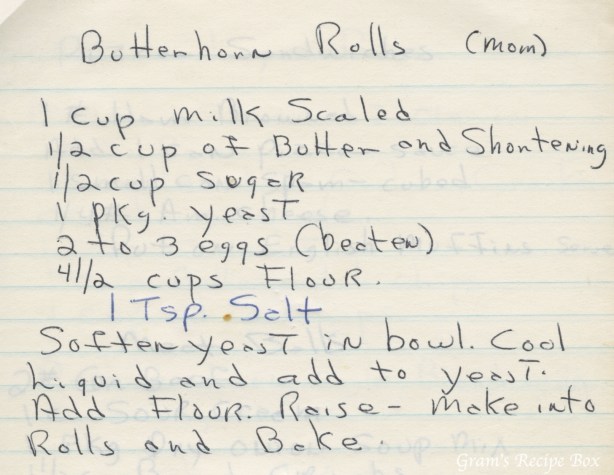 Butterhorn Rolls (mom)
1 cup milk Scaled
1/2 cup of Butter and Shortening
1/2 cup sugar
1 pkg yeast
2 to 3 eggs (beaten)
4 1/2 cups Flour.
1 Tsp. Salt
Soften yeast in bowl. Cool
Liquid and add to yeast.
Add Flour. Raise - make into
Rolls and Bake.
Gram's Recipe Box